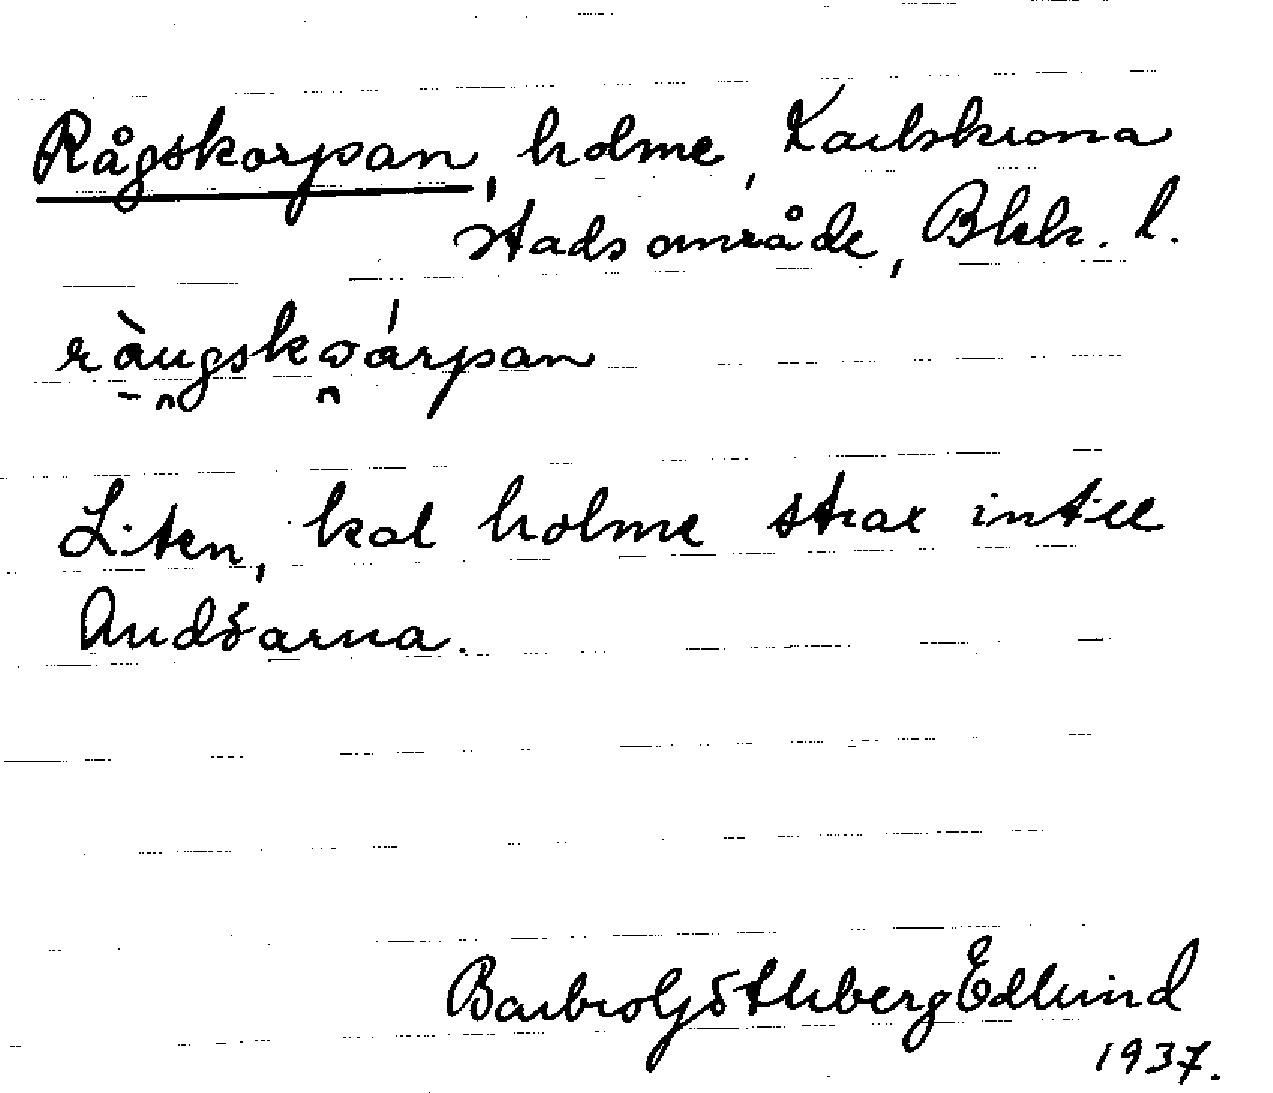 Rågskorpan, holme, Karlskrona
stadsområde, Blek. l.
ràu̯gsko̯árpan
Liten, kal holme strax intill
Andöarna.
Barbro Göthberg Edlund
1937.